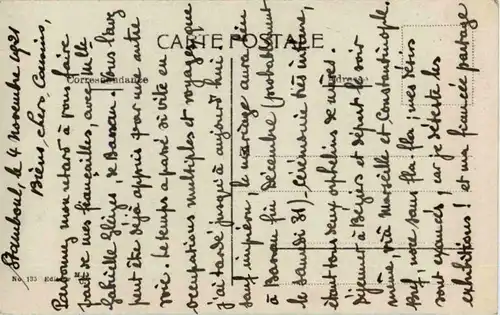 CARTE POSTALE
Correspondance
Adresse
No 135 Edit
Stamboul, le 4 Novembre 1921
Biens chers Cousins,
Pardonnez mon retard à vous faire
part de mes fiançailles avec Mlle
Gabrielle de Bassan. Vous l'avez
peut être déjà appris par une autre
voie. Le temps a passé si vite en
occupations multiples et voyages que
j'ai tardé jusqu'à aujourd'hui.
Sauf imprévu le mariage aura lieu
à Bassan fin Décembre (probablement
le samedi 31), Cérémonie très intime,
étant tous deux orphelins de mères.
Déjeuner à Béziers et départ le soir
même, via Marseille et Constantinople.
Bref, noce sans fla-fla; mes désirs
sont exaucés, car je déteste les
exhibitions! et ma fiancée partage